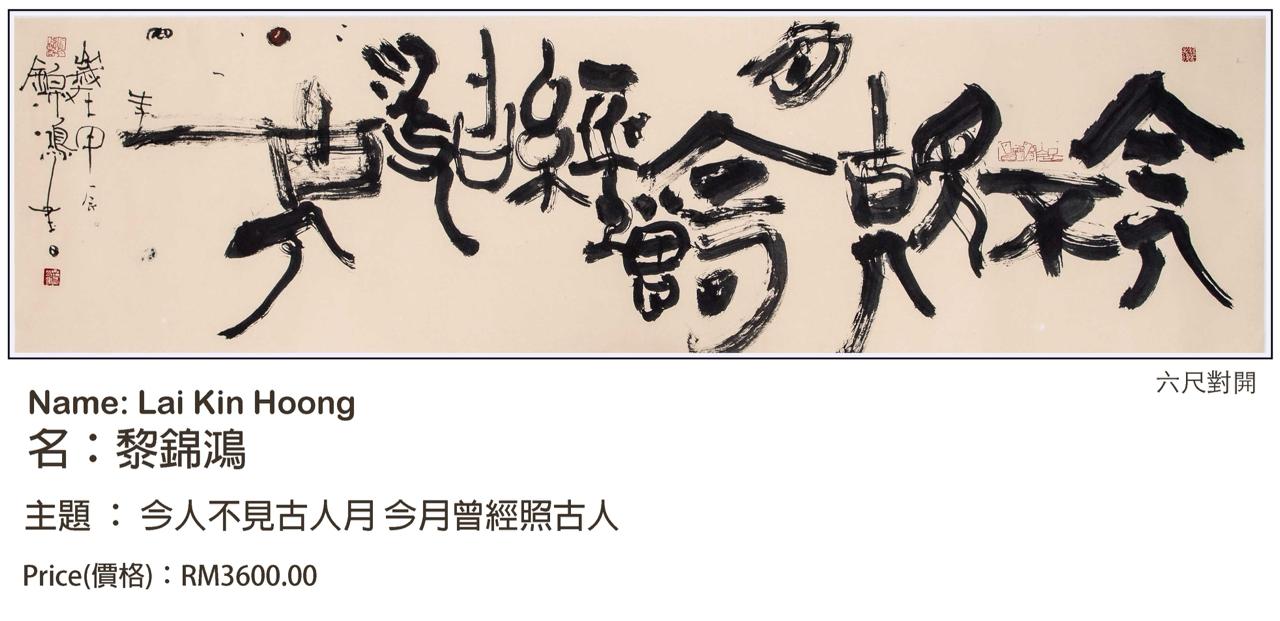 今人不見古人月今月曾經照古人
歲在甲辰年
錦鴻書
六尺對開
Name: Lai Kin Hoong
名：黎錦鴻
主題 ： 今人不見古人月 今月曾經照古人
Price(價格)：RM3600.00